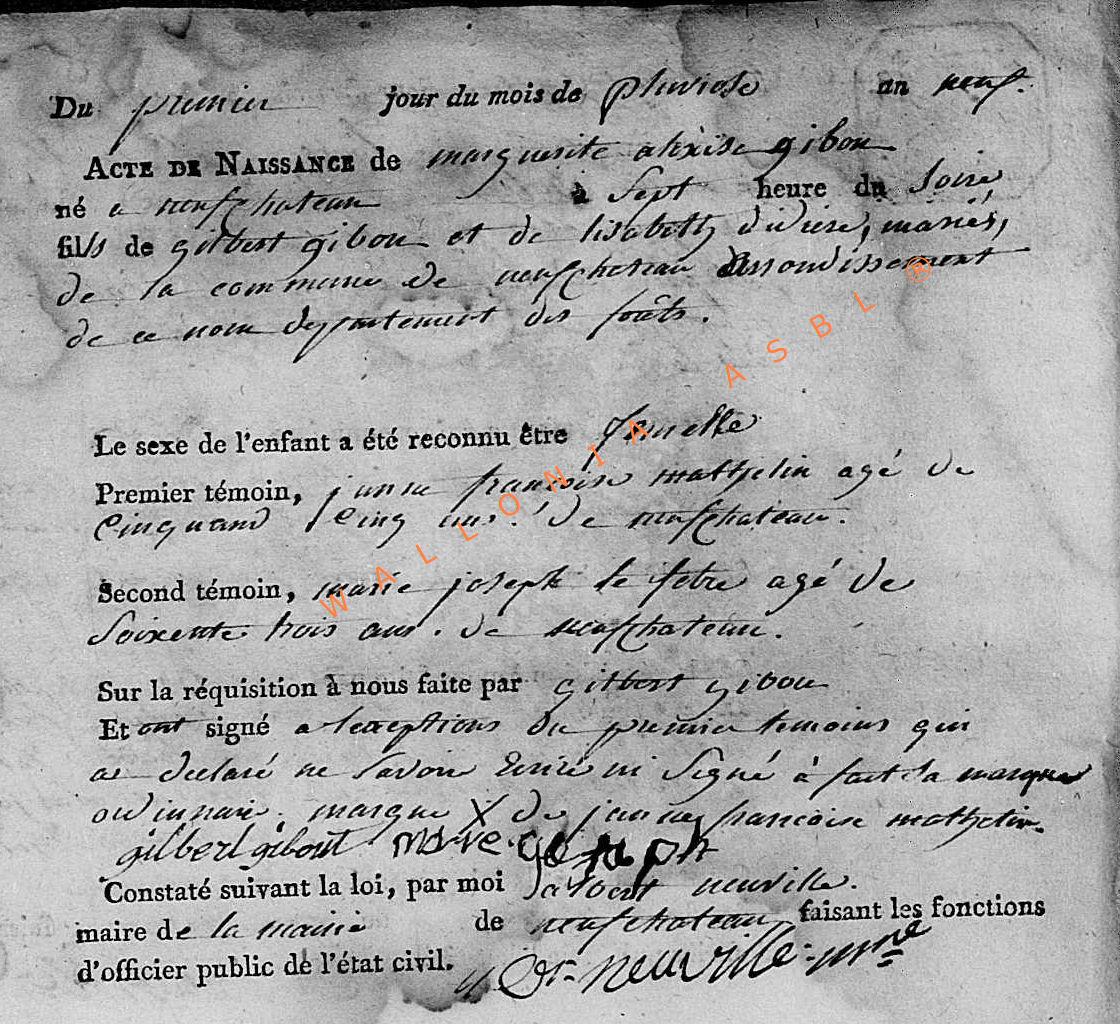 Du premier jour du mois de pluviose an neuf.
ACTE DE NAISSANCE de marguerite alexise gibou
né a neufchateau à Sept heure du Soire
fills de gilbert gibou et de lisabeth didiere, mariés,
de la commune de neufchateau arrondissement
de ce nom departement des forêts.
Le sexe de l'enfant a été reconnu être femelle
Premier témoin, janne francoise mathelin agé de
Cinquand Cinq ans. de neufchateau.
Second témoin, marie joseph le febre agé de
Soixente trois ans. de neufchateau.
Sur la réquisition à nous faite par gilbert gibou
Et ont signé a lexceptions du premier temoins qui
a declaré ne Savoir Ecrire ni Signé à fait sa marque
ordinnaire. marque X de janne francoise mathelin.
gilbert gibout marie. joseph
Constaté suivant la loi, par moi neuville.
maire de la mairie de neufchateau faisant les fonctions
d'officier public de l'état civil. neuville mre
WALLONIA ASBL ®